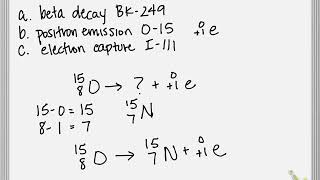 a. beta decay BK-249
b. positron emission O-15 ⁰₊₁e
c. election capture I-111
¹⁵₈O → ? + ⁰₊₁e
15-0=15 ¹⁵₇N
8-1=7
¹⁵₈O → ¹⁵₇N + ⁰₊₁e